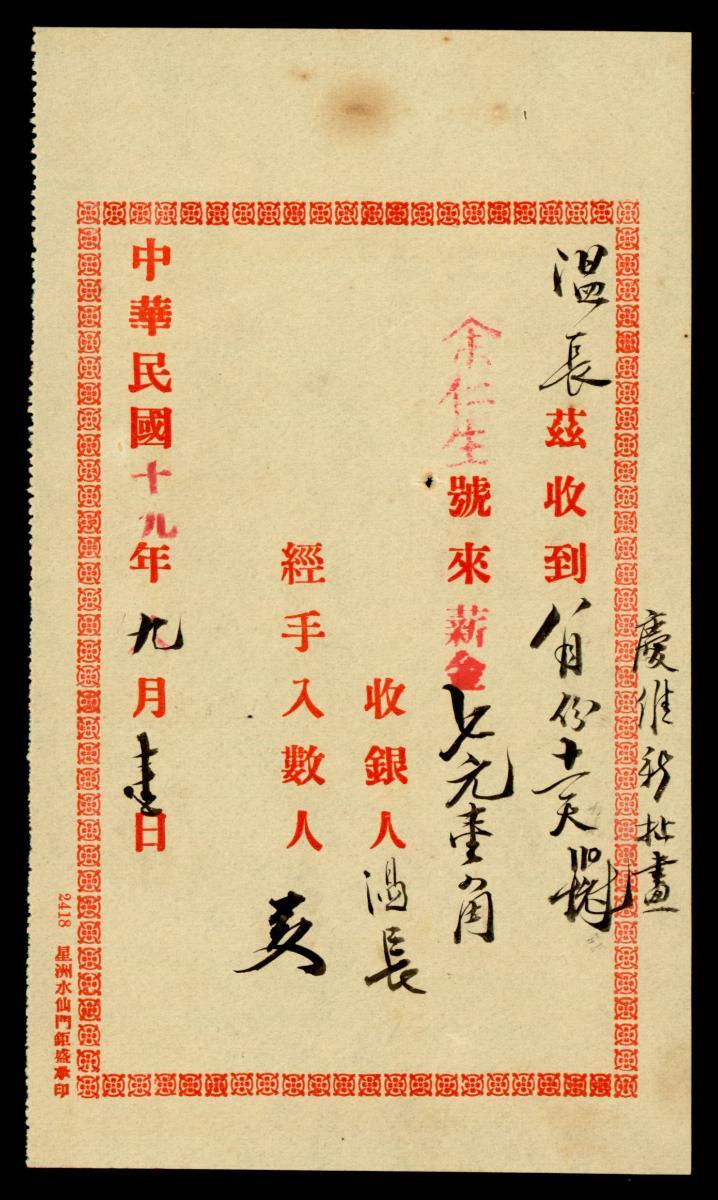 慶維新批畫
溫長茲收到八月份十一天
余仁生號來薪金七元壹角
收銀人溫長
經手入數人
中華民國十九年九月壹日
2418 星洲水仙門鉅盛承印